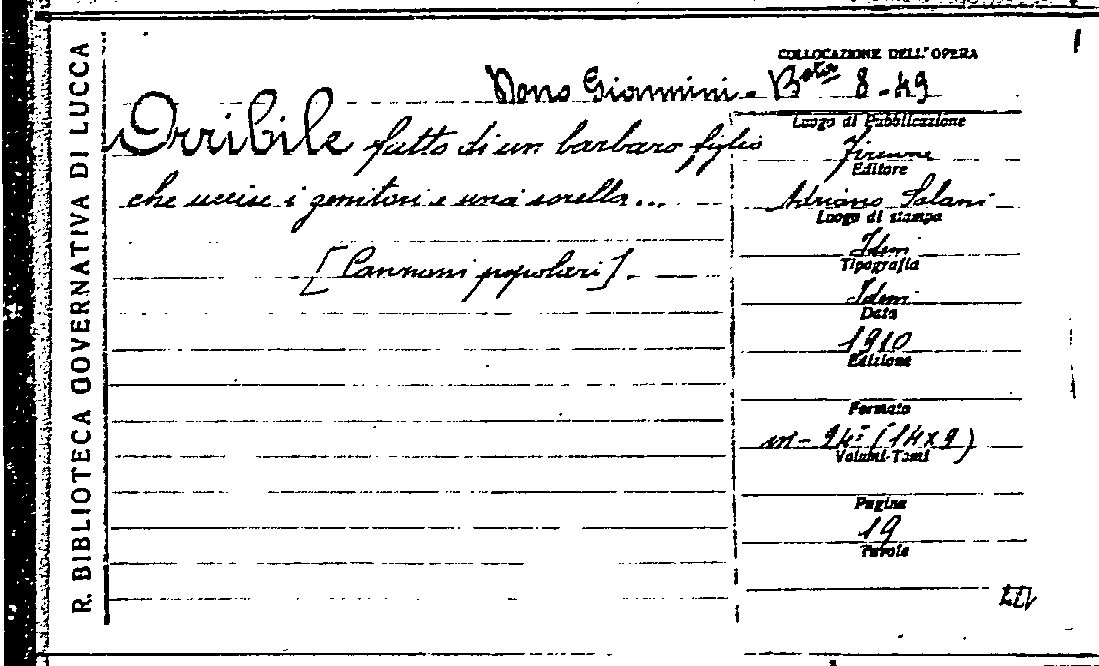 R. BIBLIOTECA GOVERNATIVA DI LUCCA
COLLOCAZIONE DELL'OPERA
Dono Giannini - Bta 8-49
Orribile fatto di un barbaro figlio
che uccise i genitori e una sorella...
[Canzoni popolari].
Luogo di Pubblicazione
Firenze
Editore
Adriano Salani
Luogo di stampa
Idem
Tipografia
Idem
Data
1910
Edizione
Formato
in-24° (14x9)
Volumi-Tomi
Pagine
19
Tavole